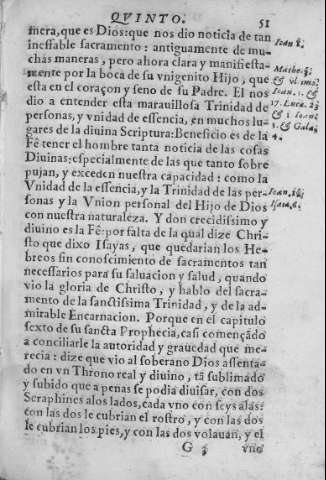 QVINTO. 51
mera, que es Dios: que nos dio noticia de tan
ineffable sacramento: antiguamente de mu-
chas maneras, pero ahora clara y manifiesta-
mente por la boca de su vnigenito Hijo, que
esta en el coraçon y seno de su Padre. El nos
dio a entender esta marauillosa Trinidad de
personas, y vnidad de essencia, en muchos lu-
gares de la diuina Scriptura: Beneficio es de la
Fê tener el hombre tanta noticia de las cosas
Diuinas: especialmente de las que tanto sobre
pujan, y exceden nuestra capacidad: como la
Vnidad de la essencia, y la Trinidad de las per-
sonas y la Vnion personal del Hijo de Dios
con nuestra naturaleza. Y don crecidissimo y
diuino es la Fê: por falta de la qual dize Chri-
sto que dixo Isayas, que quedarian los He-
breos sin conoscimiento de sacramentos tan
necessarios para su saluacion y salud, quando
vio la gloria de Christo, y hablo del sacra-
mento de la sanctissima Trinidad, y de la ad-
mirable Encarnacion. Porque en el capitulo
sexto de su sancta Prophecia, casi començãdo
a conciliarle la autoridad y grauedad que me-
recia: dize que vio al soberano Dios assenta-
do en vn Throno real y diuino, tã sublimado
y subido que a penas se podia diuisar, con dos
Seraphines a los lados, cada vno con seys alas:
con las dos le cubrian el rostro, y con las dos
le cubrian los pies, y con las dos volauan, y el
G 3 vno
Ioan 1.
Mathe.
Ioan. 1. &
17. Luca.
4.
Ioan.
Isai. 6.